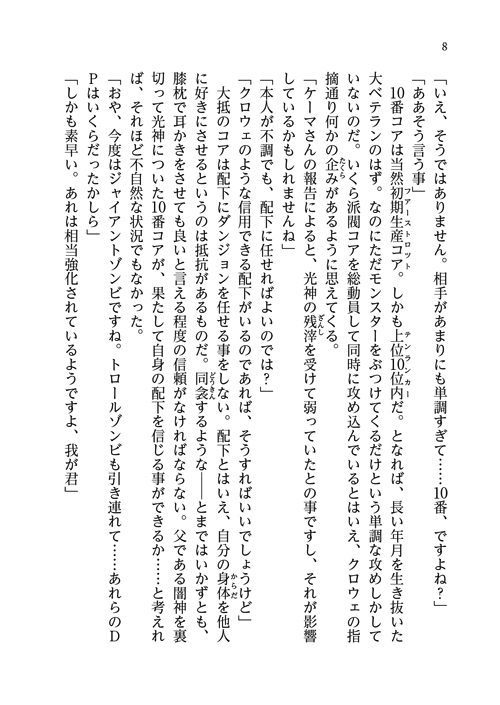 8
「いえ、そうではありません。相手があまりにも単調すぎて……10番、ですよね？」
「ああそう言う事」
10番コアは当然初期生産コア。しかも上位10位内だ。となれば、長い年月を生き抜いた
ファーストロット
テンランカー
大ベテランのはず。なのにただモンスターをぶつけてくるだけという単調な攻めしかして
いないのだ。いくら派閥コアを総動員して同時に攻め込んでいるとはいえ、クロウェの指
摘通り何かの企みがあるように思えてくる。
たくら
「ケーマさんの報告によると、光神の残滓を受けて弱っていたとの事ですし、それが影響
ざんし
しているかもしれませんね」
「本人が不調でも、配下に任せればよいのでは？」
「クロウェのような信用できる配下がいるのであれば、そうすればいいでしょうけど」
大抵のコアは配下にダンジョンを任せる事をしない。配下とはいえ、自分の身体を他人
からだ
に好きにさせるというのは抵抗があるものだ。同衾するような――とまではいかずとも、
どうきん
膝枕で耳かきをさせても良いと言える程度の信頼がなければならない。父である闇神を裏
切って光神についた10番コアが、果たして自身の配下を信じる事ができるか……と考えれ
ば、それほど不自然な状況でもなかった。
「おや、今度はジャイアントゾンビですね。トロールゾンビも引き連れて……あれらのD
Pはいくらだったかしら」
「しかも素早い。あれは相当強化されているようですよ、我が君」